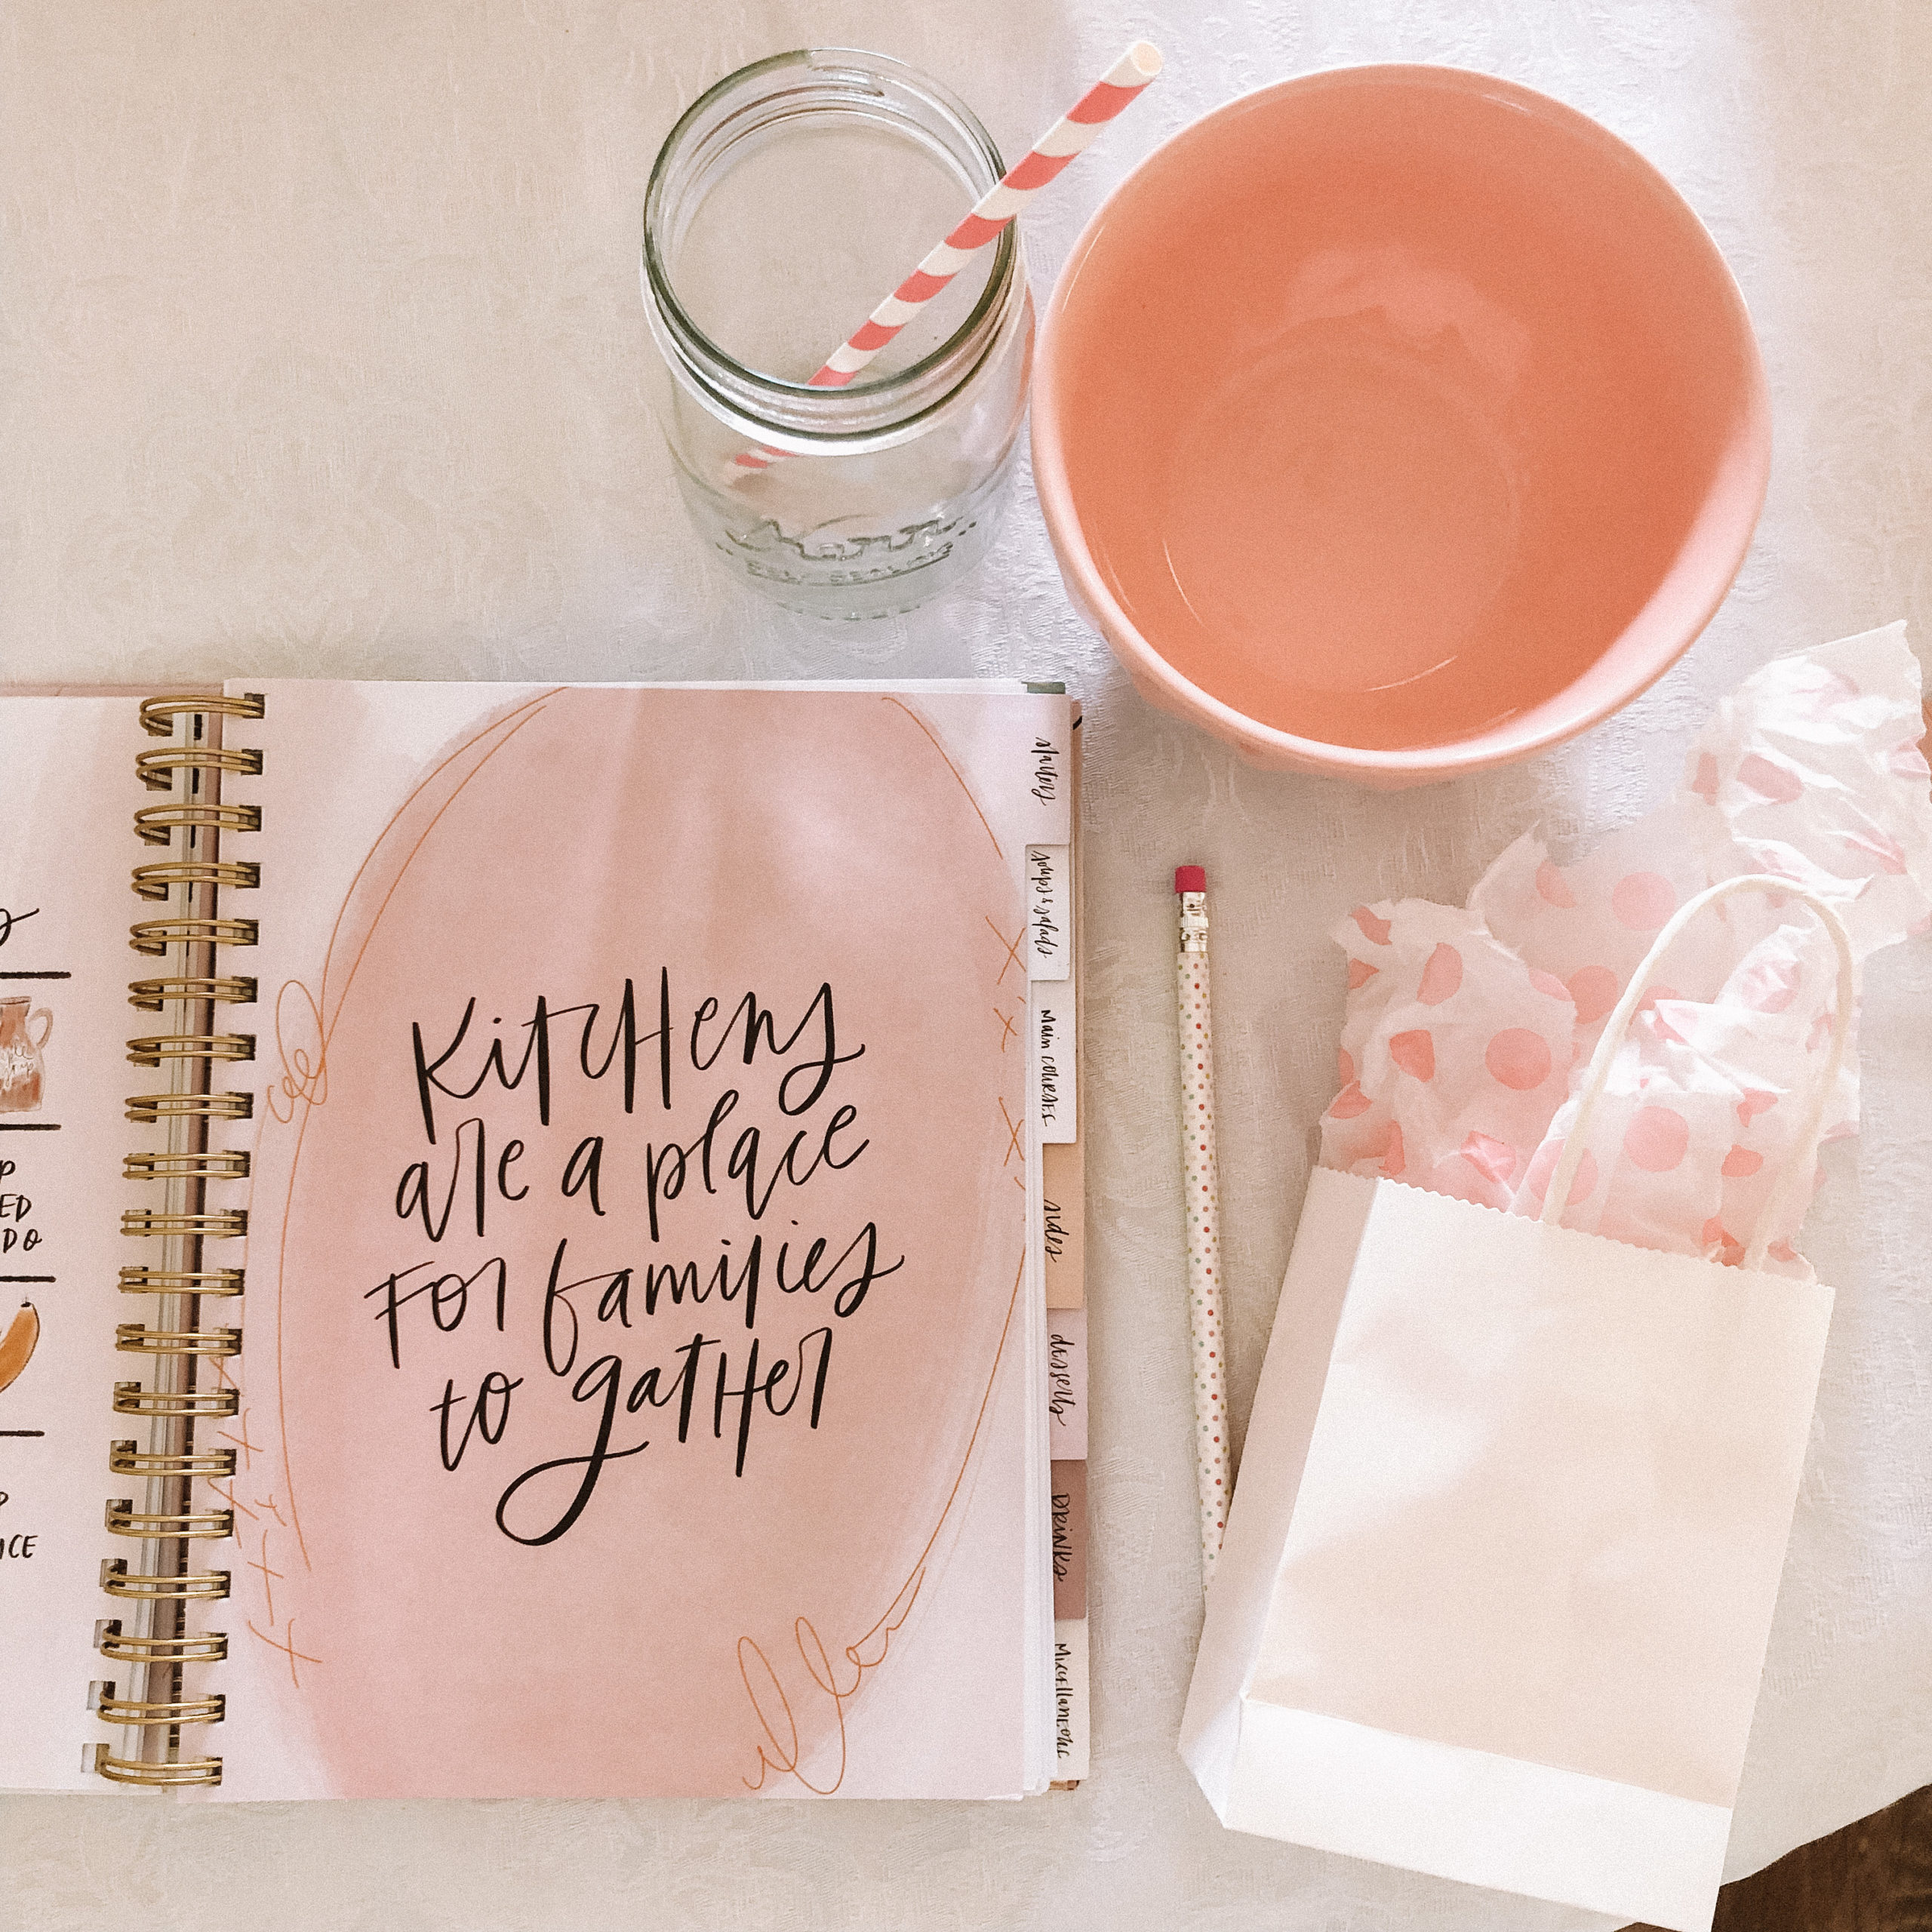 Kitchens
are a place
For families
to gather
starters
soups & salads
Main courses
sides
desserts
DRINKS
Miscellaneous
Kerr
SELF SEALING
P
ED
DO
P
ICE